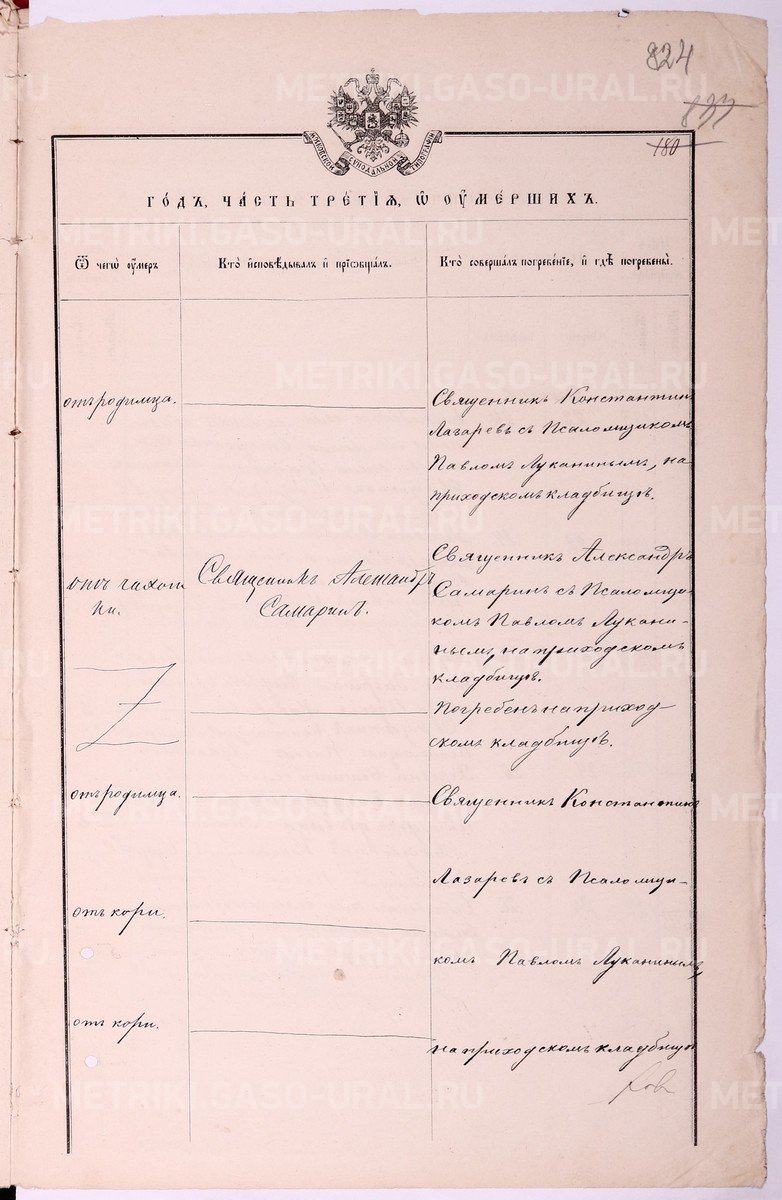 824
833
180
МОСКОВСКОЙ СѴНОДАЛЬНОЙ ТИПОГРАФІИ
ГОДЪ, ЧАСТЬ ТРЕТІЯ, Ѿ ОУМЕРШИХЪ.
Ѿ чегѡ оумеръ
Кто исповѣдывалъ и пріобщалъ.
Кто совершалъ погребеніе, и гдѣ погребены.
отъ родимца.
Священникъ Константинъ
Лазаревъ съ Псаломщикомъ
Павломъ Луканинымъ, на
приходскомъ кладбищѣ.
отъ чахот
ки.
Священникъ Александръ
Самаринъ.
Священникъ Александръ
Самаринъ съ Псаломщи-
комъ Павломъ Лукани-
нымъ, на приходскомъ
кладбищѣ.
Погребенъ на приход-
скомъ кладбищѣ.
отъ родимца.
Священникъ Константинъ
Лазаревъ съ Псаломщи-
отъ кори.
комъ Павломъ Луканинымъ,
отъ кори.
на приходскомъ кладбищѣ
METRIKI.GASO-URAL.RU